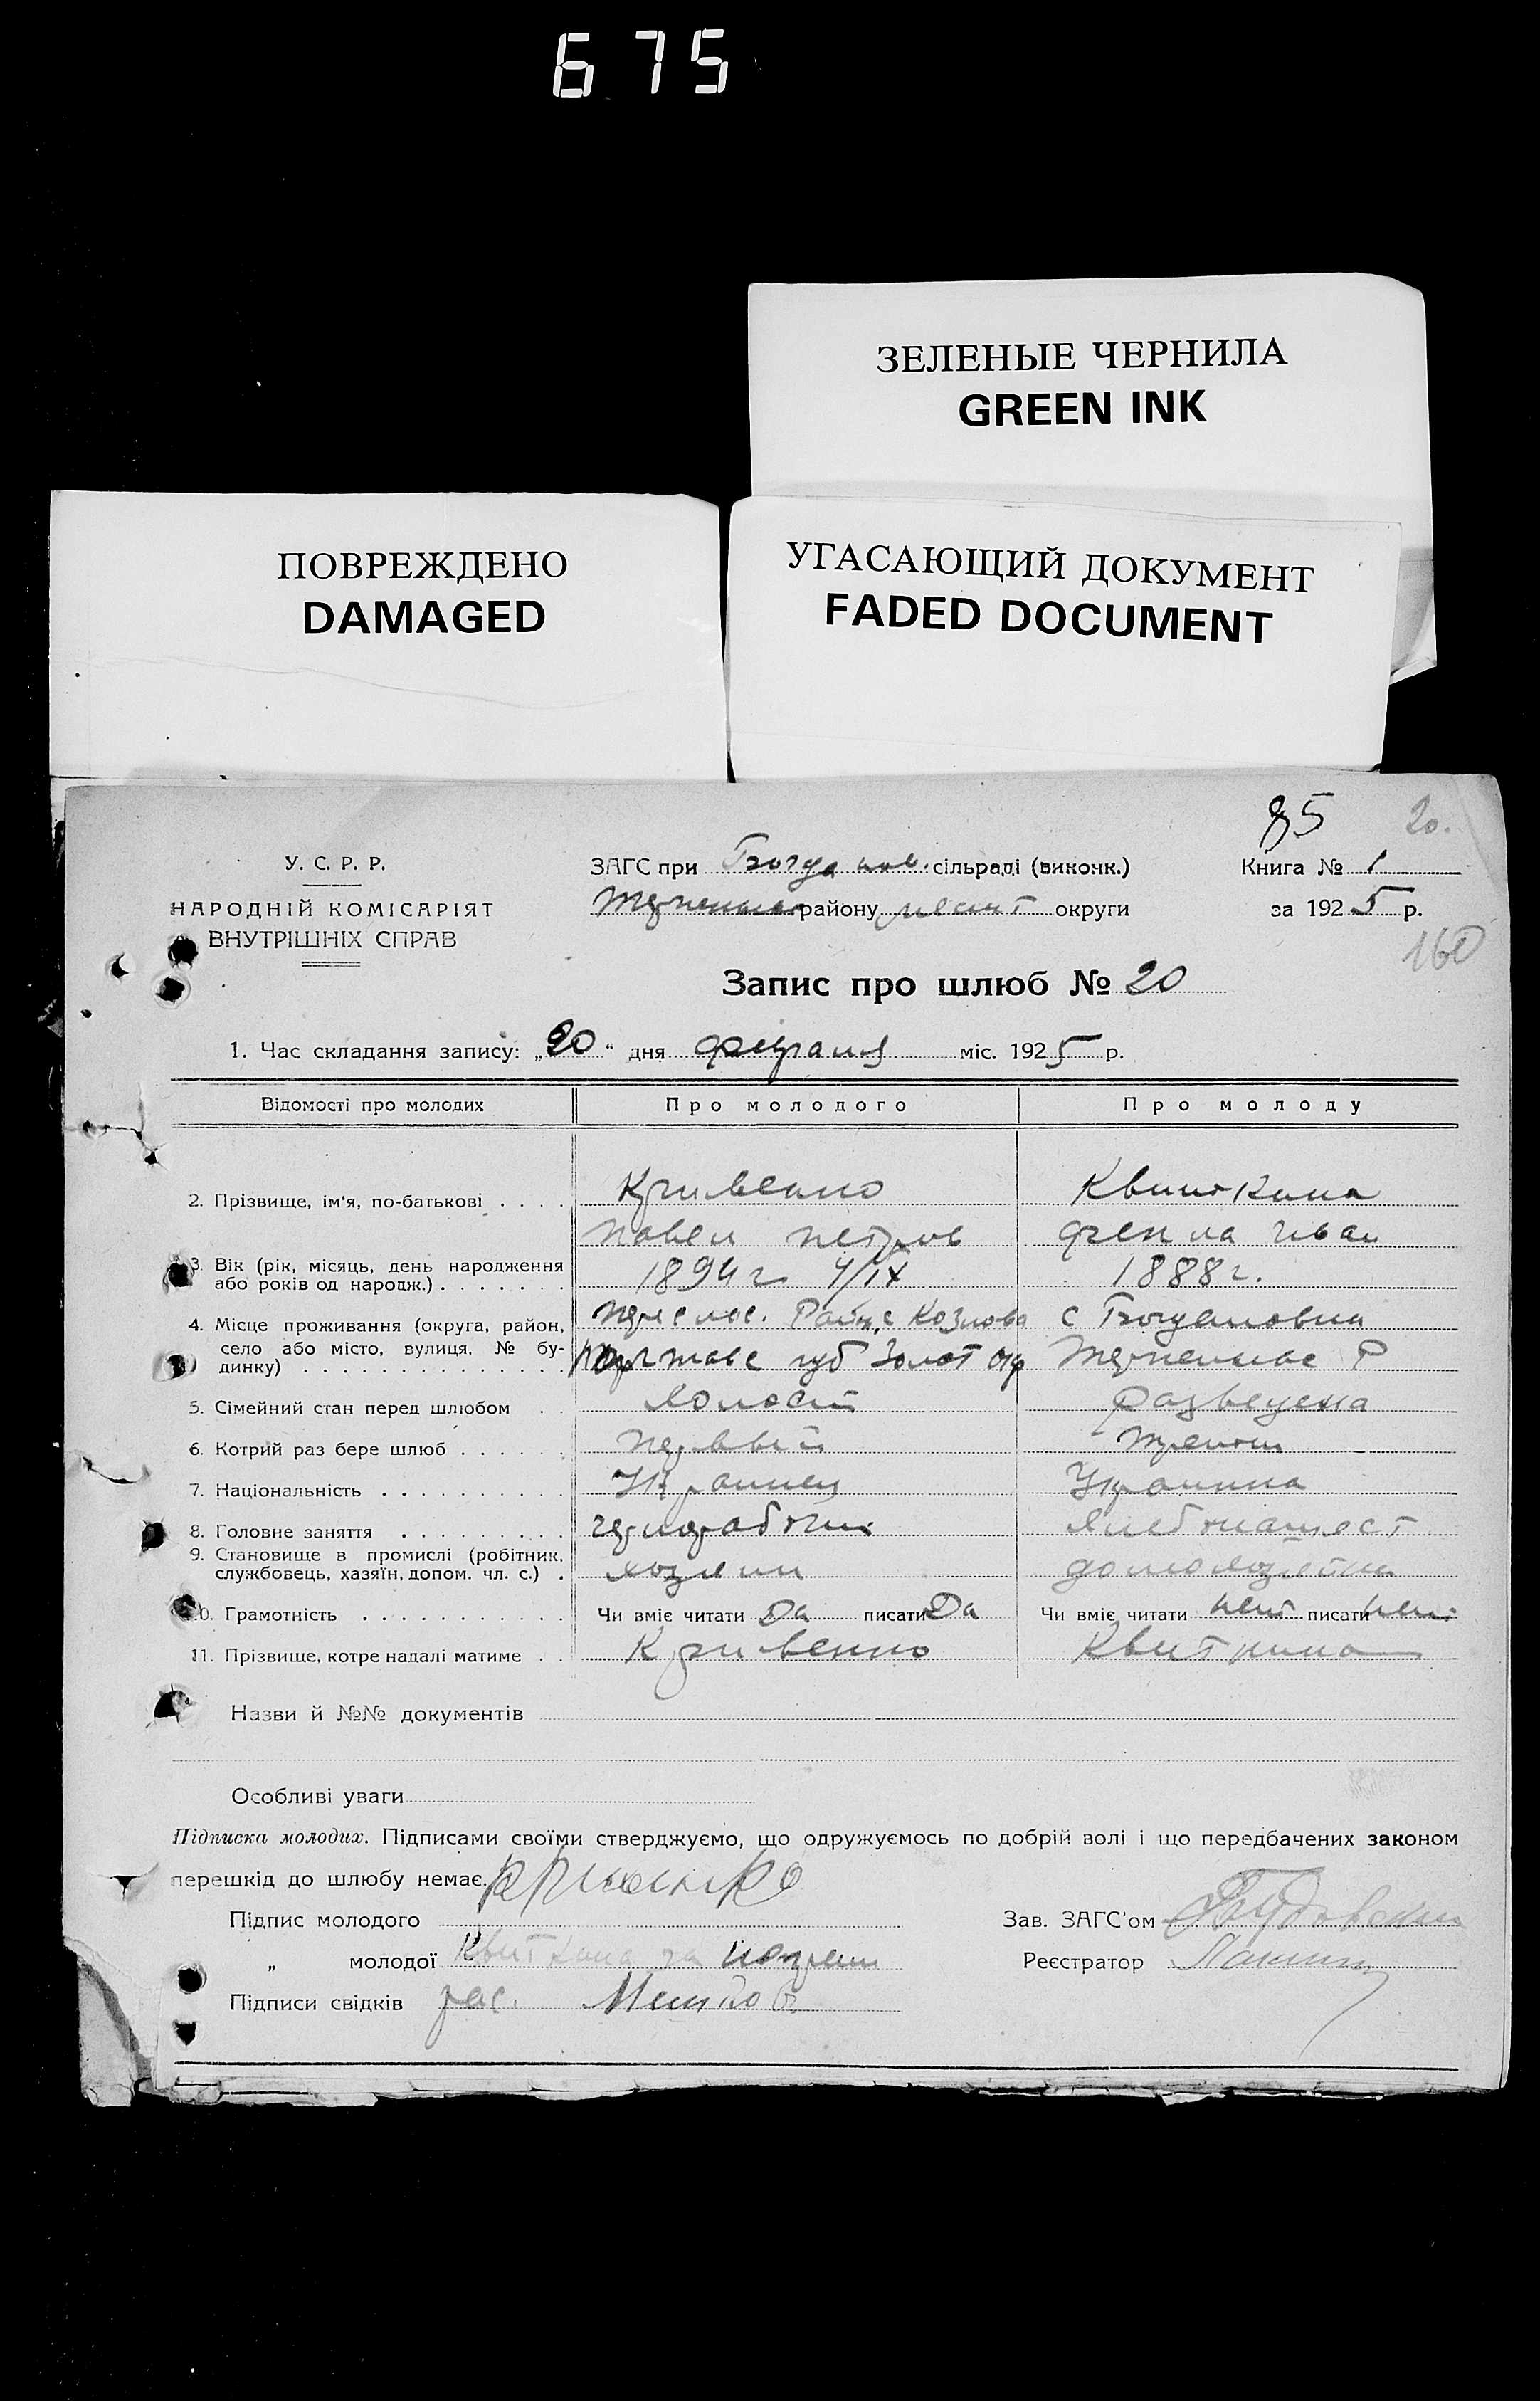 675
ЗЕЛЕНЫЕ ЧЕРНИЛА
GREEN INK
ПОВРЕЖДЕНО
DAMAGED
УГАСАЮЩИЙ ДОКУМЕНТ
FADED DOCUMENT
85 20.
У. С. Р. Р.
НАРОДНІЙ КОМІСАРІЯТ
ВНУТРІШНІХ СПРАВ
ЗАГС при Богданов. сільраді (виконк.)
району округи
Книга № 1
за 1925 р.
160
Запис про шлюб № 20
1. Час складання запису: „20“ дня февраля міс. 1925 р.
Відомості про молодих Про молодого Про молоду
2. Прізвище, ім'я, по-батькові . . . . Кривенко Квиткина
Павел Петров Иван
3. Вік (рік, місяць, день народження
або років од народж.) . . . . . . . 1894 г 4/IX 1888 г.
4. Місце проживання (округа, район,
село або місто, вулиця, № бу-
динку) . . . . . . . . . . . . .
Район, с Козлова с Богдановка
губ Золот окр Р
5. Сімейний стан перед шлюбом . . холост разведена
6. Котрий раз бере шлюб . . . . . . первый
7. Національність . . . . . . . . . . Украинец Украинка
8. Головне заняття . . . . . . . . . чернорабочий хлебопашест
9. Становище в промислі (робітник,
службовець, хазяїн, допом. чл. с.) . хозяин домохозяйка
10. Грамотність . . . . . . . . . . . Чи вміє читати Да писати Да Чи вміє читати нет писати нет
11. Прізвище, котре надалі матиме . . Кривенко Квиткина
Назви й №№ документів
Особливі уваги
Підписка молодих. Підписами своїми стверджуємо, що одружуємось по добрій волі і що передбачених законом
перешкід до шлюбу немає.
Підпис молодого
„ молодої Квиткина за
Підписи свідків рас.
Зав. ЗАГС'ом
Реєстратор